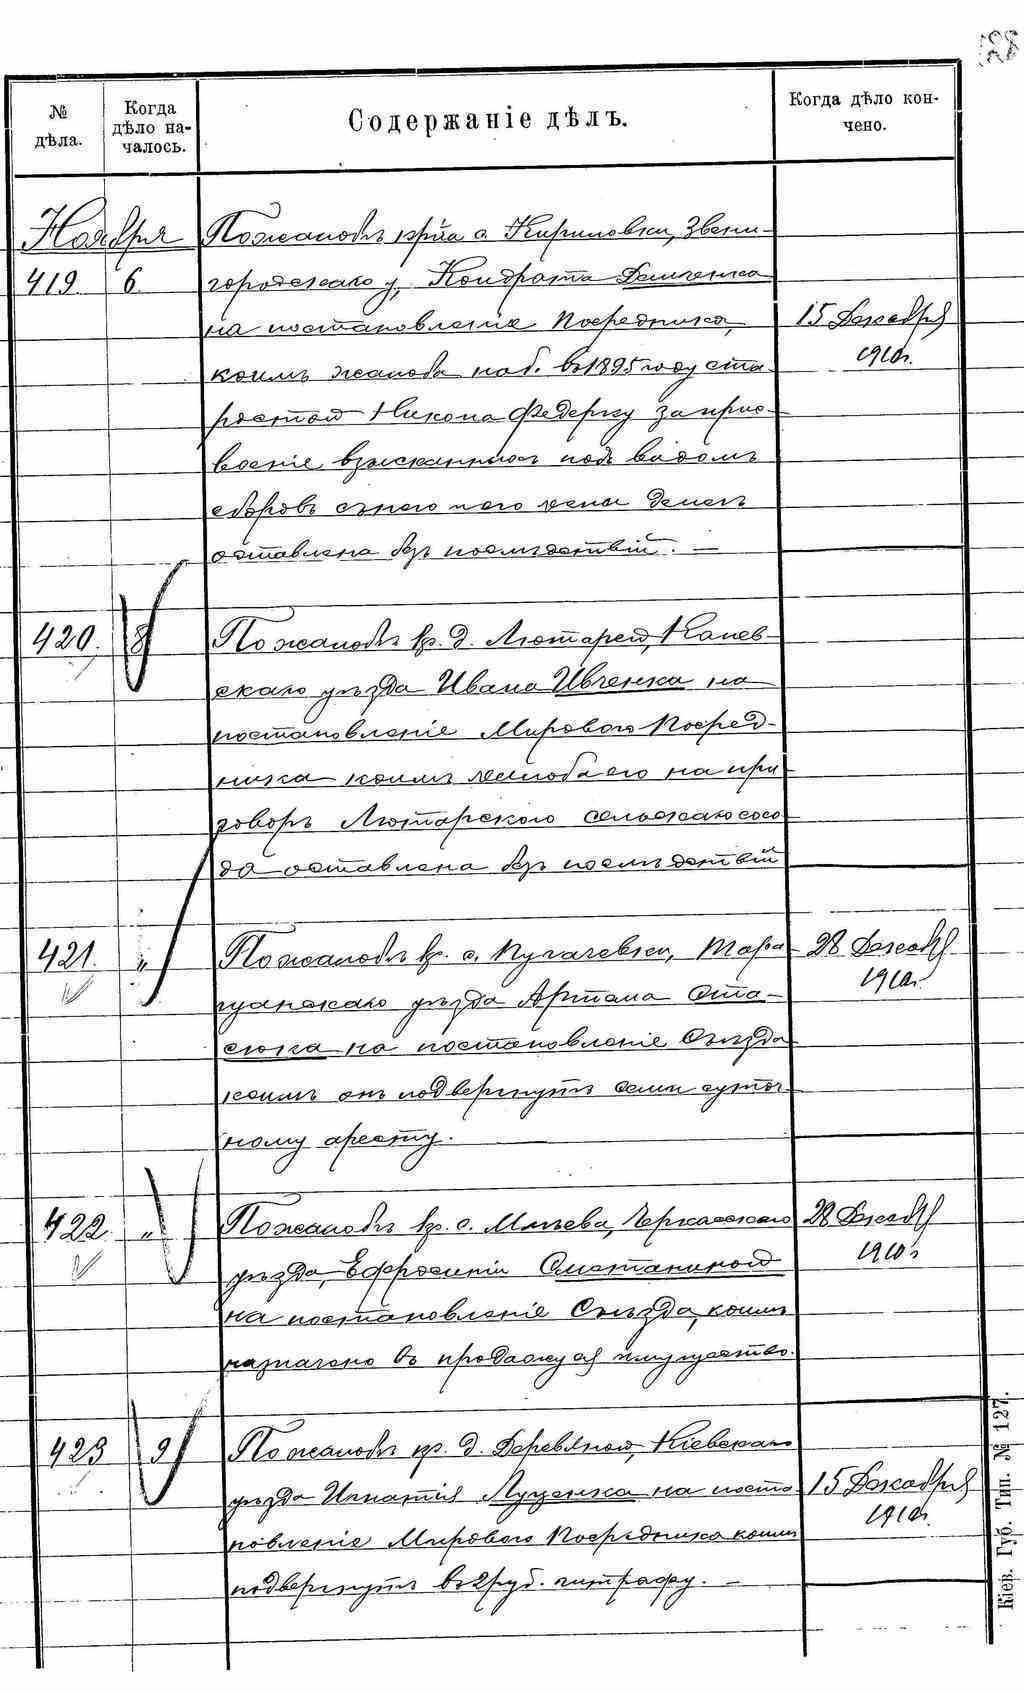 128
№ дѣла.
Когда дѣло началось.
Содержаніе дѣлъ.
Когда дѣло кончено.
Ноября
419 6
По жалобѣ кр-на с. Кириловки, Звени-
городскаго у. Кондрата Демченка
на постановленіе Посредника,
коимъ жалоба на б. въ 1895 году ста-
ростой Никона Федерку за присво-
еніе взысканныхъ подъ видомъ
сборовъ съ него денегъ
оставлена безъ послѣдствій. —
15 Декабря
1910 г.
420. 8
По жалобѣ кр. д. Лютарей, Канев-
скаго уѣзда Ивана Ивченка на
постановленіе Мирового Посред-
ника коимъ жалоба его на при-
говоръ Лютарского сельскаго схо-
да оставлена безъ послѣдствій
421. "
По жалобѣ кр. с. Пугачевки, Тара-
щанскаго уѣзда Артема Ста-
сюка на постановленіе Съѣзда
коимъ онъ подвергнутъ семи суточ-
ному аресту.
28 Декабря
1910 г.
422. "
По жалобѣ кр. с. Млѣева, Черкасскаго
уѣзда, Ефросиніи Сметаниной
на постановленіе Съѣзда, коимъ
назначено въ продажу ея имущество.
28 Декабря
1910 г.
423 9
По жалобѣ кр. д. Деревяной, Кіевскаго
уѣзда Игнатія Луценка на поста-
новленіе Мирового Посредника коимъ
подвергнутъ въ 2 руб. штрафу. —
15 Декабря
1910 г.
Кіев. Губ. Тип. № 127.